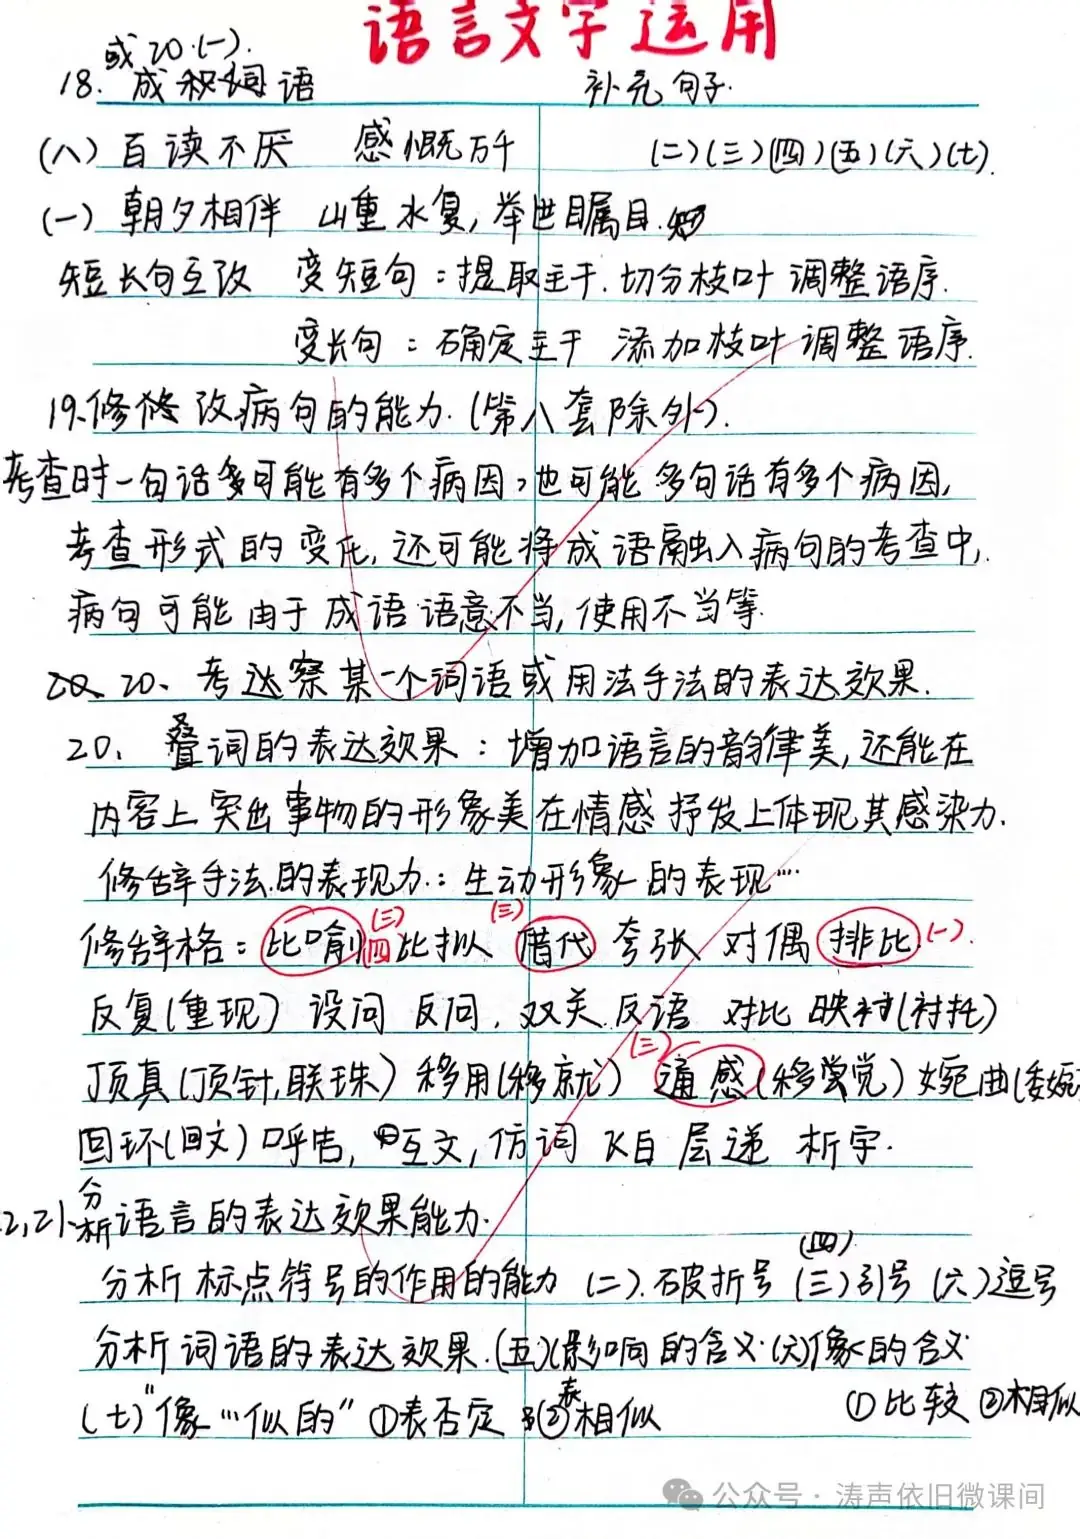 语言文字运用
或20.(一).
18. 成积词语 补充句子.
(八) 百读不厌 感慨万千 (二)(三)(四)(五)(六)(七).
(一) 朝夕相伴 山重水复, 举世瞩目.
短长句互改 变短句：提取主干. 切分枝叶 调整语序.
变长句：确定主干 添加枝叶 调整语序.
19.修改病句的能力. (第八套除外).
考查时一句话可能有多个病因,也可能多句话有多个病因,
考查形式的变化, 还可能将成语融入病句的考查中,
病句可能由于成语语意不当, 使用不当等.
20、考察某一个词语或用法手法的表达效果.
20、叠词的表达效果：增加语言的韵律美, 还能在
内容上突出事物的形象美在情感抒发上体现其感染力.
修辞手法的表现力：生动形象的表现…
修辞格：比喻(三)四 比拟 (三)借代 夸张 对偶 排比(一).
反复(重现) 设问 反问, 双关 反语 对比 映衬(衬托)
顶真(顶针,联珠) 移用(移就) (三)通感(移觉) 婉曲(委婉
回环(回文) 呼告, 互文, 仿词 飞白 层递 析字.
2,21、分析语言的表达效果能力.
分析标点符号的作用的能力 (二).破折号 (四).(三)引号 (六)逗号
分析词语的表达效果.(五)影响的含义.(六)像的含义
(七)"像…似的" ①表否定 ②表相似 ①比较 ②相似
公众号·涛声依旧微课间